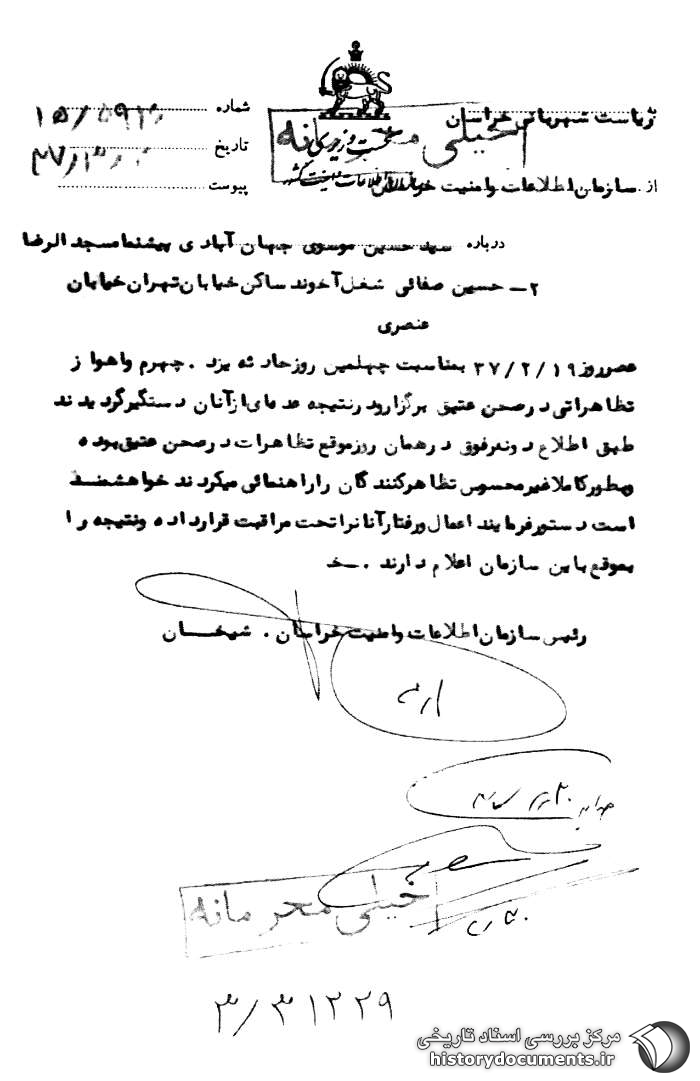 ریاست شهربانی خراسان
شماره
خیلی محرمانه
نخست وزیری
تاریخ
از سازمان اطلاعات وامنیت خراسان
سازمان اطلاعات و امنیت کشور
پیوست
درباره سید حسین موسوی جهان آبادی پیشنماز مسجد الرضا
۲ــ حسین صفائی شغل آخوند ساکن خیابان تهران خیابان
عنصری
عصرروز ۳۷/۲/۱۹ بمناسبت چهلمین روزحادثه یزد . جهرم واهواز
تظاهراتی درصحن عتیق برگزارودرنتیجه عده ای ازآنان دستگیرگردیدند
طبق اطلاع دونفرفوق درهمان روزموقع تظاهرات درصحن عتیق بوده
وبطورکاملا غیرمحسوس تظاهرکنندگان راراهنمائی میکردند خواهشمند
است دستورفرمایند اعمال ورفتارآنانراتحت مراقبت قرارداده ونتیجه را
بموقع باین سازمان اعلام دارند .ــخـ
رئیس سازمان اطلاعات وامنیت خراسان . شیخان
خیلی محرمانه
۳/۳۱۲۲۹
مرکز بررسی اسناد تاریخی
historydocuments.ir